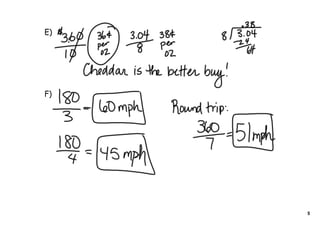 E) $3.60/10 36¢ per oz 3.04/8 38¢ per oz
.38
8)3.04
24
64
Cheddar is the better buy!
F) 180/3 = 60 mph Round trip:
180/4 = 45 mph 360/7 = 51 mph
8